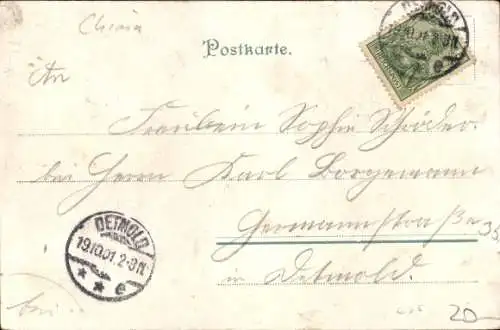 China
DETMOLD
Postkarte.
An
Fräulein Sophie Schröder
bei Herrn Karl Borgemann
Hermannstraße 35
in Detmold.
DETMOLD
19.10.01.2-3N
* * e
20